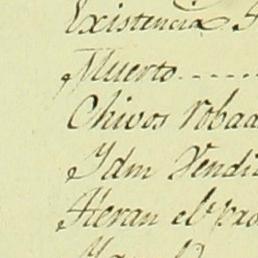 Existencia
Muerto
Chivos robad
Ydm Vendi
Heran el